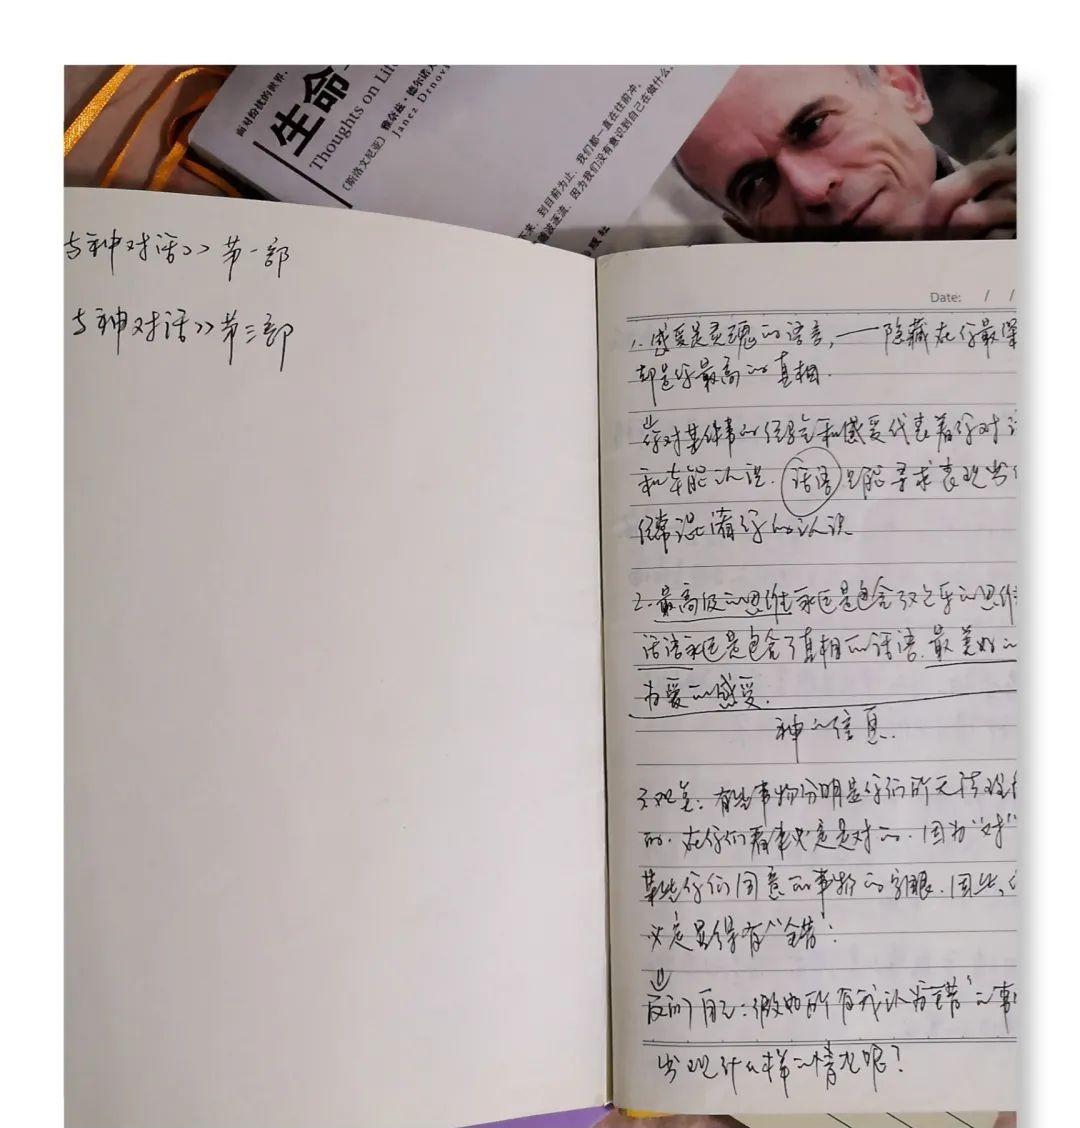 面对纷扰的世界,
生命
Thoughts on Life
〔斯洛文尼亚〕雅奈兹·德尔诺夫
Janez Drnov
来,到目前为止,我们都一直在往前冲,
随波逐流,因为我们没有意识到自己在做什么。
版社
与神对话>> 第一部
与神对话>> 第三部
Date: / /
1. 感受是灵魂的语言,——隐藏在你最深
却是你最高的真相.
你对某件事的经验和感受代表着你对
和本能认识. 话语只能寻求表现出
经常混淆你的认识
2. 最高级的思维永远是包含欢乐的思维
话语永远是包含了真相的话语. 最美好的
为爱的感受.
神的信息.
3. 观点: 有些事物分明是你们所无法
的. 在你们看来
是对的. 因为“对”
某些你们同意的事物的字眼. 因此,
必定显得有“错”.
反问自己: 假如所有我认为“错”的事
出现什么样的情况呢?